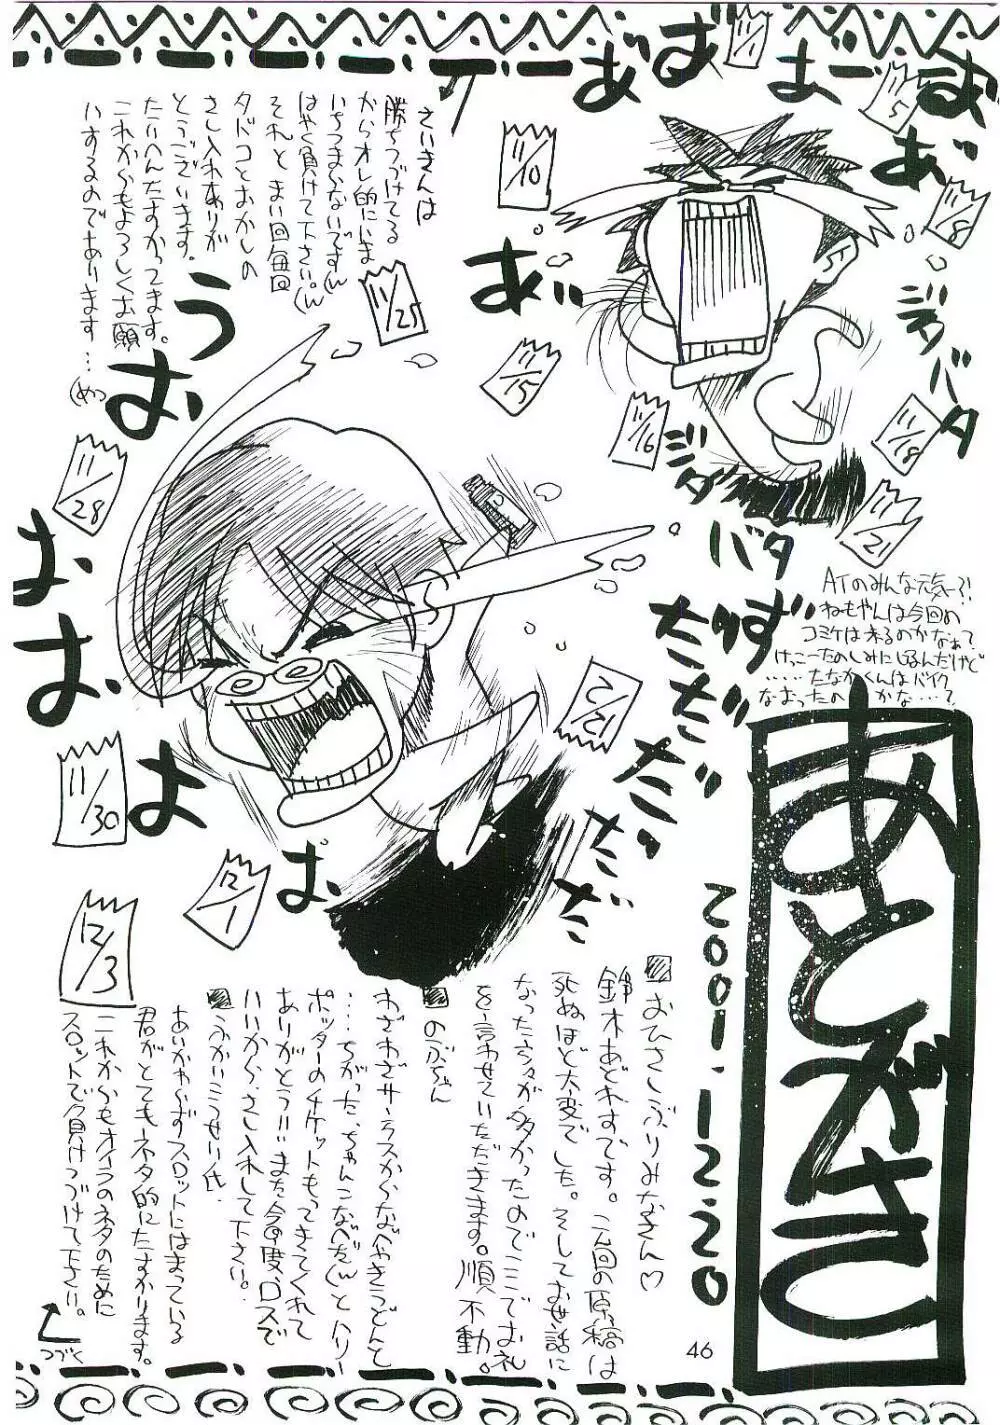 あとがき
2001.12.20
おひさしぶりみなさん♡
鈴木あどれすです。こん回の原稿は
死ぬほど大変でした。そしてお世話に
なった方々が多かったのでここでお礼
を言わせていただきます。順不動。
のぶちゃん
わざわざサーラスからなべやきうどんと
……ちがった、ちゃんこなべだ(wとハリー
ポッターのチケットもってきてくれて
ありがとう!!いまた今度、ロスで
いいから、さし入れして下さい。
ふかいこうせり氏
あいかわらずスロットにはまっている
君がとてもネタ的にたすかります。
これからもオイラのネタのために
スロットで負けつづけて下さい。
つづく
さいきんは
勝ちつづけてる
からオレ的にいま
いちつまらないです(w
はやく負けて下さい。(w
それとまい回毎回
タドコとおかしの
さし入れありが
とうございます。
たいへんたすかってます。
これからもよろしくお願
いするのであります…
(めつ
ATのみんな元気ー?!
ねもやんは今回の
コミケは来るのかなぁ?
けっこーたのしみにしてるんだけど
……たなかくんはバイク
なおったのかな……?
おぉ
おぉ
あ゛
あ゛
あ゛
ジタバタ
ジタバタ
うおおおよよぱ
たりずだだだだだだ
11/1
11/5
11/8
11/10
11/15
11/16
11/18
11/21
11/25
11/28
11/30
12/1
12/3
12/21
46